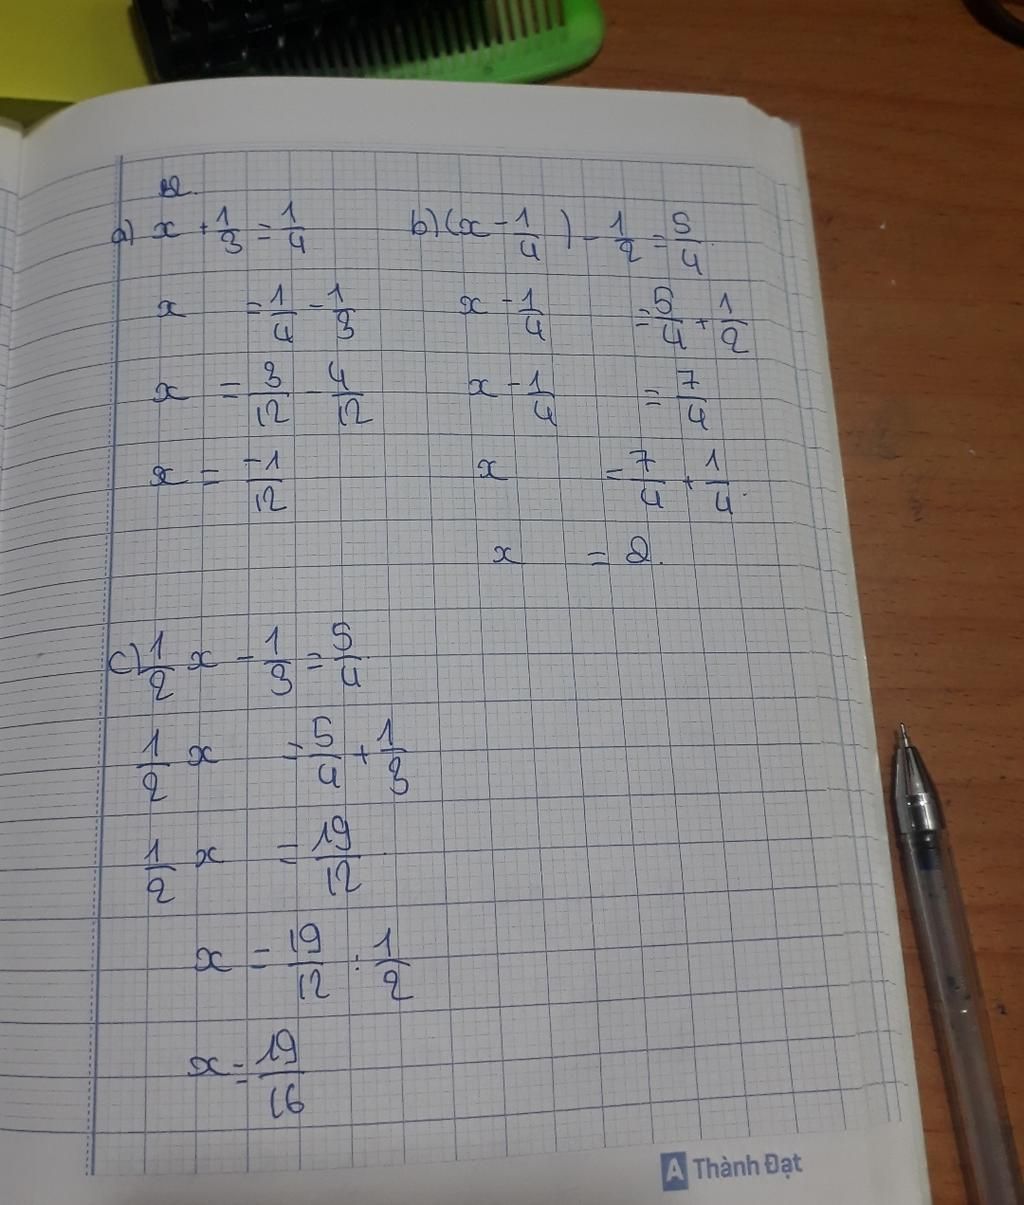 B2.
a) x + 1/3 = 1/4
x = 1/4 - 1/3
x = 3/12 - 4/12
x = -1/12
b) (x - 1/4) - 1/2 = 5/4
x - 1/4 = 5/4 + 1/2
x - 1/4 = 7/4
x = 7/4 + 1/4.
x = 2.
c) 1/2 x - 1/3 = 5/4
1/2 x = 5/4 + 1/3
1/2 x = 19/12
x = 19/12 : 1/2
x = 19/16
A Thành Đạt